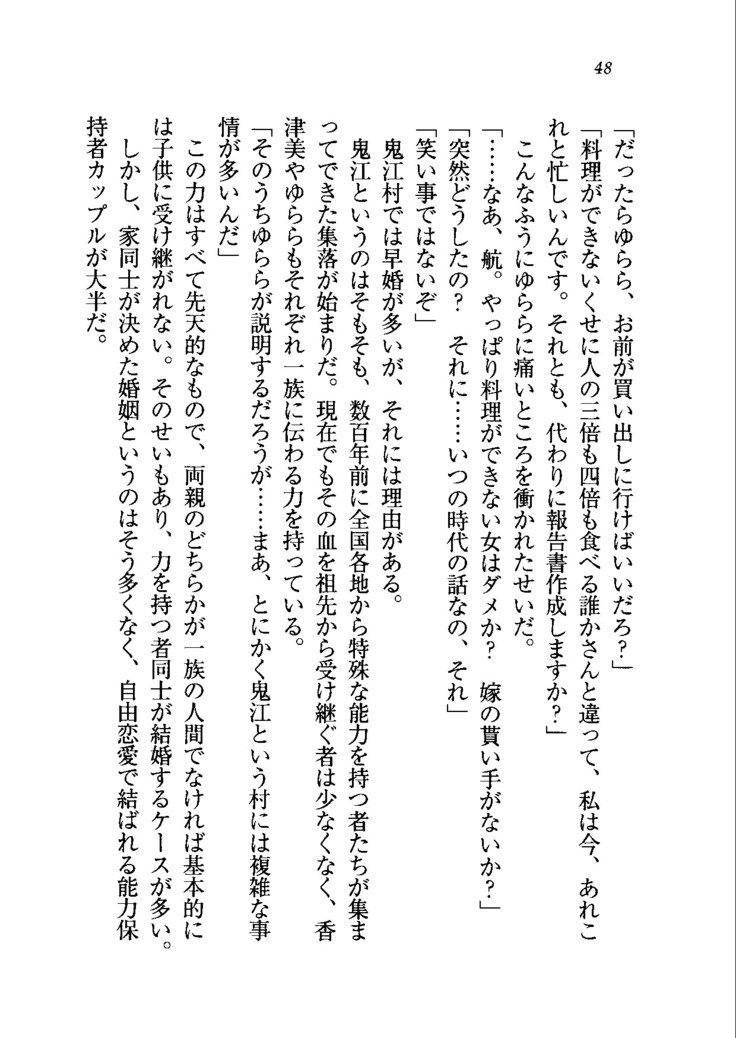 48
「だったらゆらら、お前が買い出しに行けばいいだろ?」
「料理ができないくせに人の三倍も四倍も食べる誰かさんと違って、私は今、あれこ
れと忙しいんです。それとも、代わりに報告書作成しますか?」
こんなふうにゆららに痛いところを衝かれたせいだ。
「……なあ、航。やっぱり料理ができない女はダメか? 嫁の貰い手がないか?」
「突然どうしたの? それに……いつの時代の話なの、それ」
「笑い事ではないぞ」
鬼江村では早婚が多いが、それには理由がある。
鬼江というのはそもそも、数百年前に全国各地から特殊な能力を持つ者たちが集ま
ってできた集落が始まりだ。現在でもその血を祖先から受け継ぐ者は少なくなく、香
津美やゆららもそれぞれ一族に伝わる力を持っている。
「そのうちゆららが説明するだろうが……まあ、とにかく鬼江という村には複雑な事
情が多いんだ」
この力はすべて先天的なもので、両親のどちらかが一族の人間でなければ基本的に
は子供に受け継がれない。そのせいもあり、力を持つ者同士が結婚するケースが多い。
しかし、家同士が決めた婚姻というのはそう多くなく、自由恋愛で結ばれる能力保
持者カップルが大半だ。